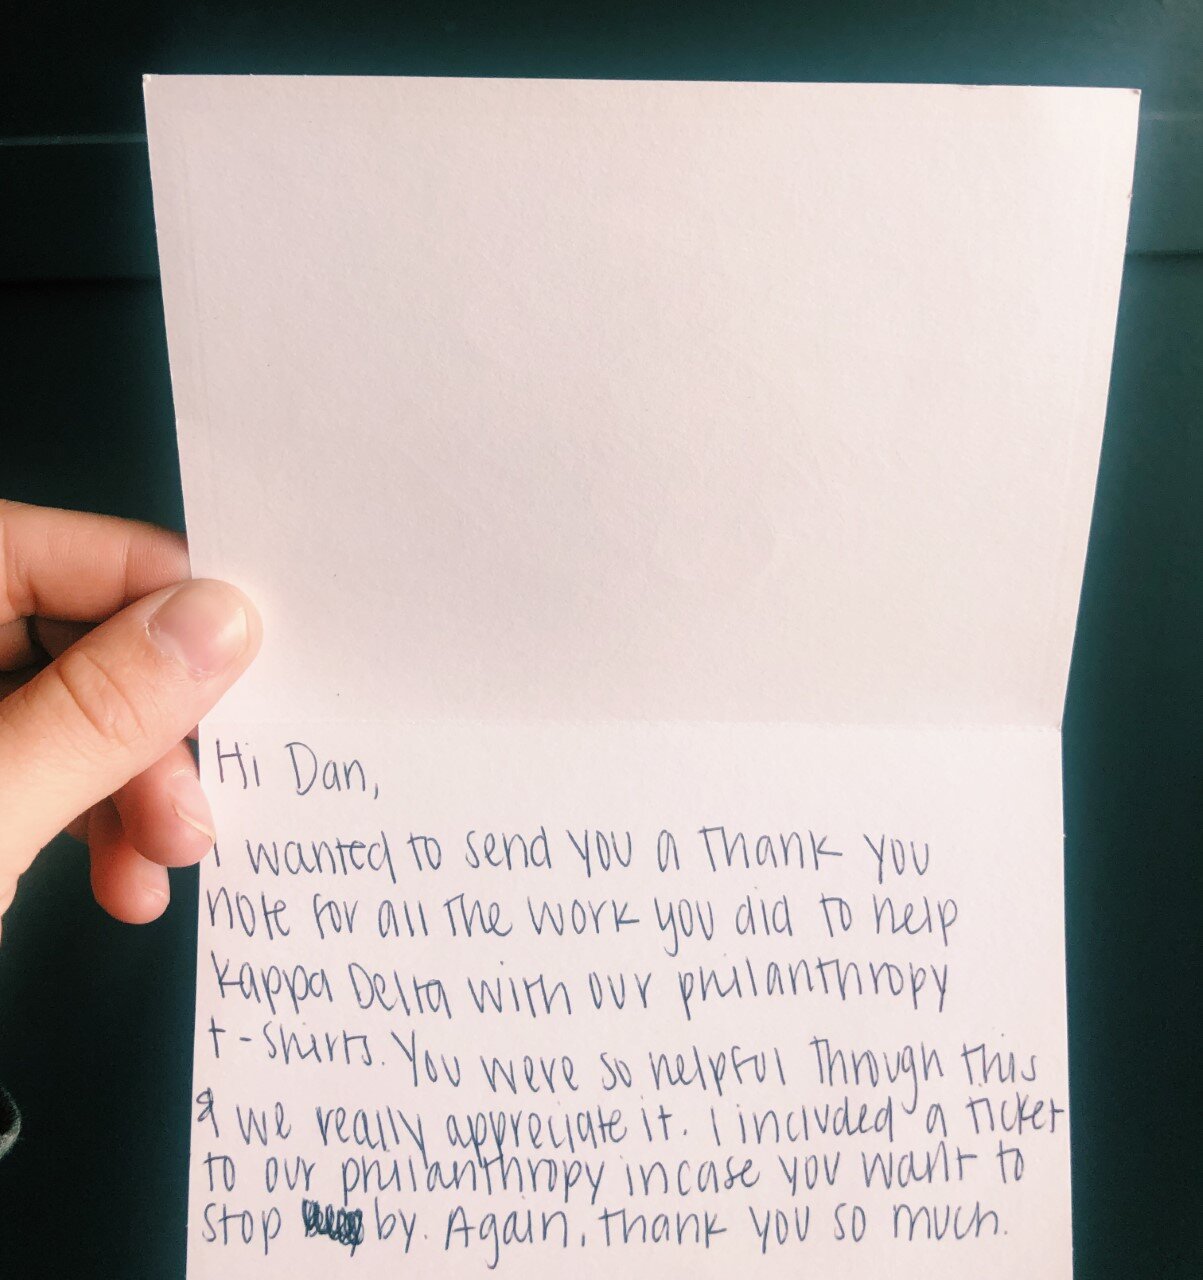 Hi Dan,
I wanted to send you a thank you
note for all the work you did to help
Kappa Delta with our philanthropy
t-shirts. You were so helpful through this
& we really appreciate it. I included a ticket
to our philanthropy incase you want to
stop by. Again, thank you so much.